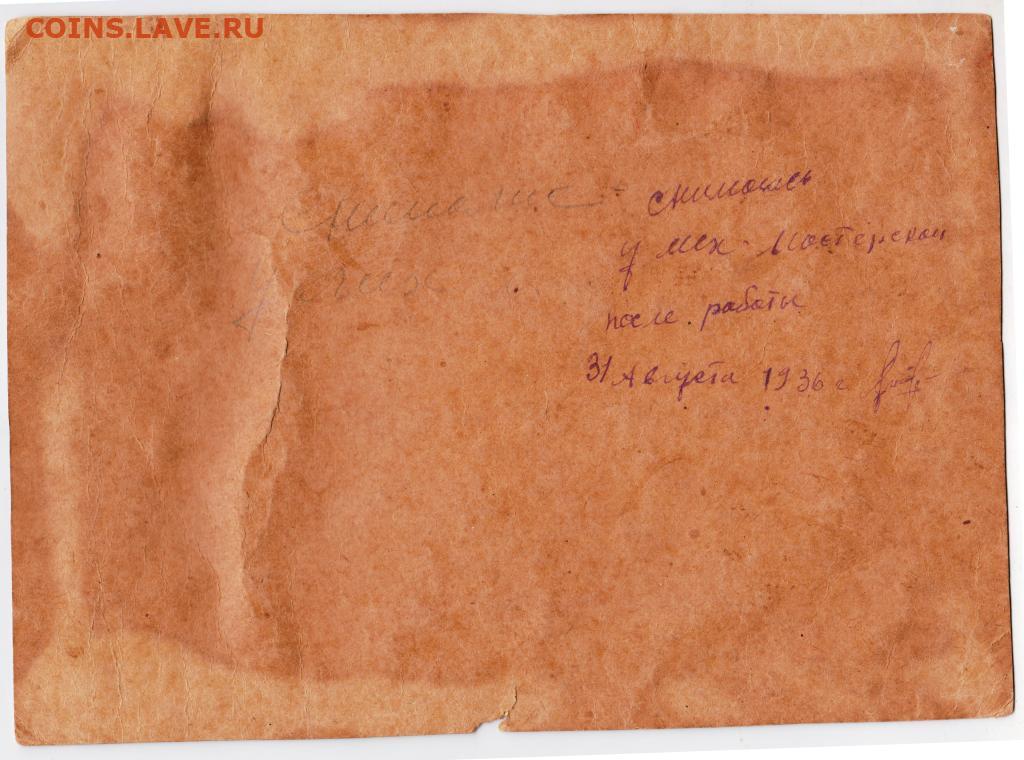 COINS.LAVE.RU
снимались
у мех. Мастерской
после работы
31 Августа 1936 г